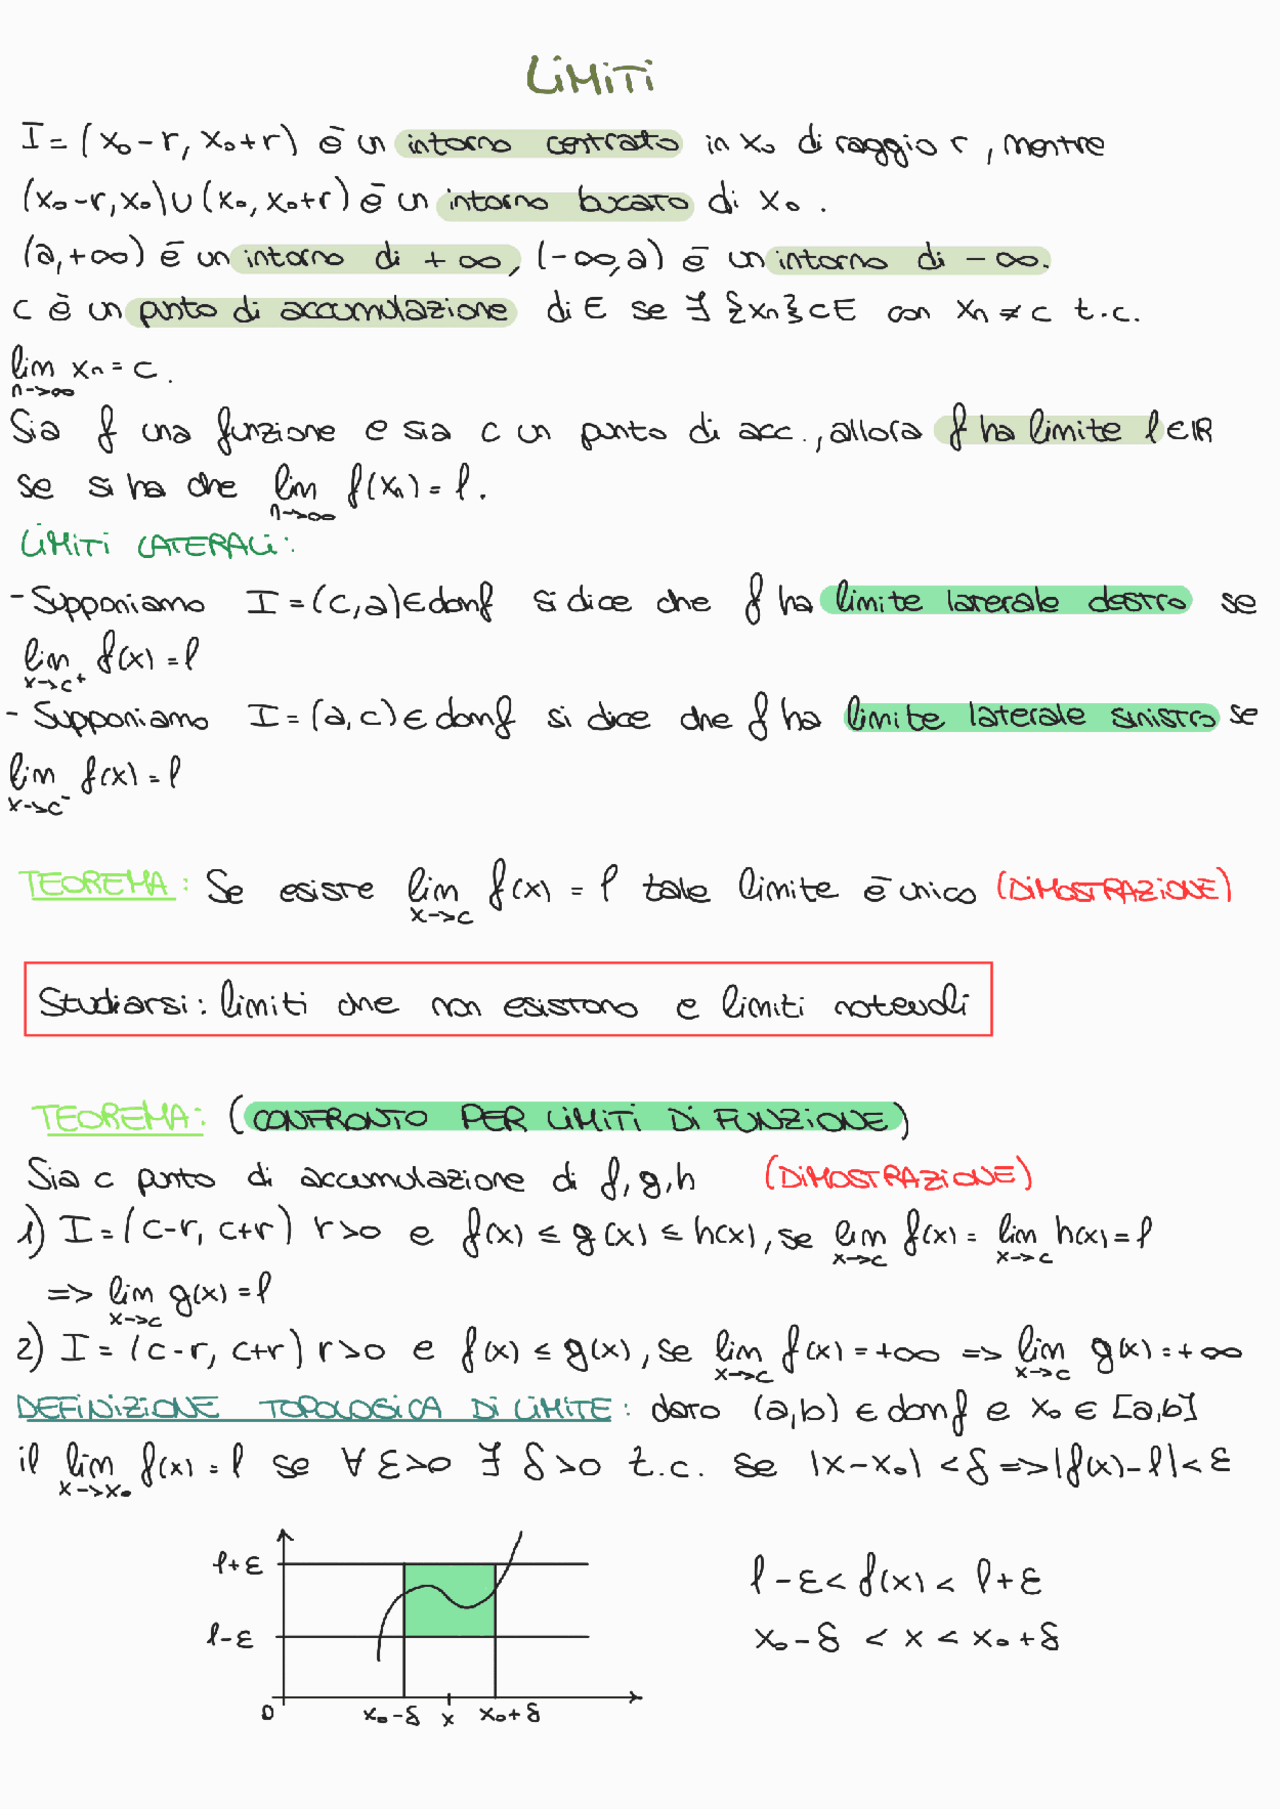 LIMITI
I = (x₀-r, x₀+r) è un intorno centrato in x₀ di raggio r, mentre
(x₀-r, x₀) ∪ (x₀, x₀+r) è un intorno bucato di x₀.
(a,+∞) è un intorno di +∞, (-∞,a) è un intorno di -∞.
c è un punto di accumulazione di E se ∃ {xₙ}⊂E con xₙ ≠ c t.c.
lim xₙ = c.
n->∞
Sia f una funzione e sia c un punto di acc., allora f ha limite l∈ℝ
se si ha che lim f(xₙ) = l.
n->∞
LIMITI LATERALI:
- Supponiamo I = (c,a)∈domf si dice che f ha limite laterale destro se
lim f(x) = l
x->c⁺
- Supponiamo I = (a,c)∈domf si dice che f ha limite laterale sinistro se
lim f(x) = l
x->c⁻
TEOREMA: Se esiste lim f(x) = l tale limite è unico (DIMOSTRAZIONE)
x->c
Studiarsi: limiti che non esistono e limiti notevoli
TEOREMA: (CONFRONTO PER LIMITI DI FUNZIONE)
Sia c punto di accumulazione di f,g,h (DIMOSTRAZIONE)
1) I = (c-r, c+r) r>0 e f(x) ≤ g(x) ≤ h(x), se lim f(x) = lim h(x) = l
x->c x->c
=> lim g(x) = l
x->c
2) I = (c-r, c+r) r>0 e f(x) ≤ g(x), se lim f(x) = +∞ => lim g(x) = +∞
x->c x->c
DEFINIZIONE TOPOLOGICA DI LIMITE: dato (a,b) ∈ domf e x₀ ∈ [a,b]
il lim f(x) = l se ∀ ε>0 ∃ δ>0 t.c. se |x-x₀| < δ => |f(x)-l| < ε
x->x₀
l+ε
l-ε
0 x₀-δ x x₀+δ
l-ε < f(x) < l+ε
x₀-δ < x < x₀+δ